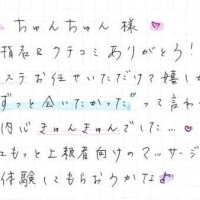 ちゅんちゅん 様
指名&クチコミ ありがとう!
ステお任せいただけて嬉し
ずっと会いたかった" って言わ
内心 きゅんきゅんでした…
もっと上級者向けのマッサージ
体験してもらおうかな♪